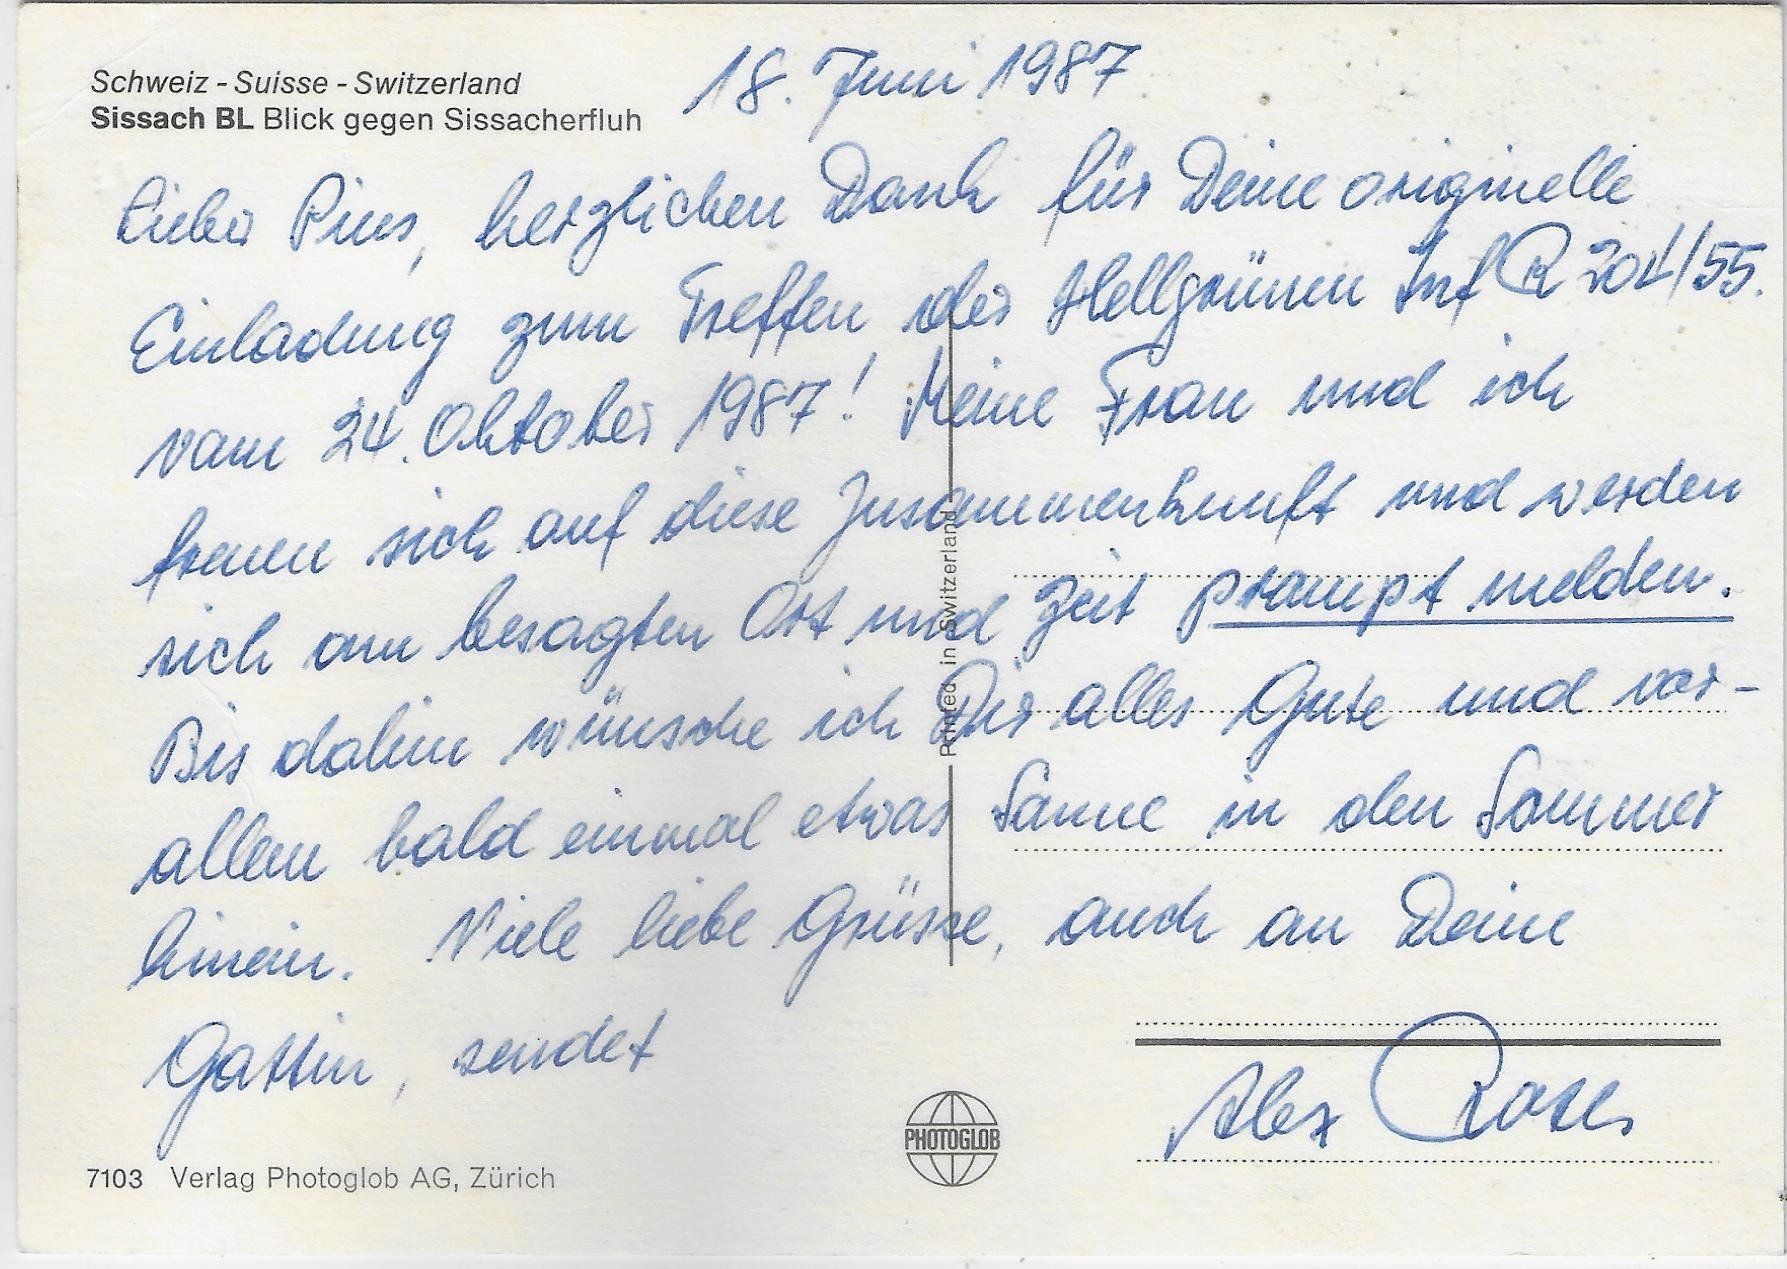 Schweiz - Suisse - Switzerland
Sissach BL Blick gegen Sissacherfluh
18. Juni 1987
Lieber Pius, herzlichen Dank für Deine originelle
Einladung zum Treffen der Hellgrünen Inf R 204/55.
vom 24. Oktober 1987! Meine Frau und ich
freuen sich auf diese Zusammenkunft und werden
sich am besagten Ort und Zeit prompt melden.
Bis dahin wünsche ich Dir alles Gute und vor-
allem bald einmal etwas Sonne in den Sommer
hinein. Viele liebe Grüsse, auch an Deine
Gattin, sendet
Alex
Printed in Switzerland
PHOTOGLOB
7103 Verlag Photoglob AG, Zürich